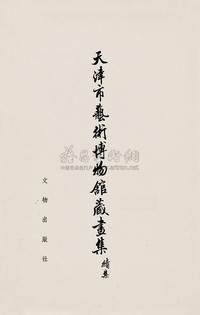 天津市藝術博物館藏畫集
續集
文物出版社